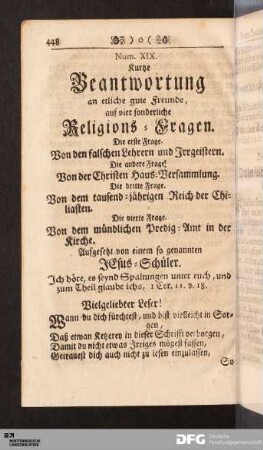 448
Num. XIX.
Kurtze
Beantwortung
an etliche gute Freunde,
auf vier sonderliche
Religions-Fragen.
Die erste Frage.
Von den falschen Lehrern und Irrgeistern.
Die andere Frage.
Von der Christen Haus-Versammlung.
Die dritte Frage.
Von dem tausend-jährigen Reich der Chi-
liasten.
Die vierte Frage.
Von dem mündlichen Predig-Amt in der
Kirche.
Aufgesetzt von einem so genannten
JEsus-Schüler.
Ich höre, es seynd Spaltungen unter euch, und
zum Theil glaube ichs, 1 Cor. 11. v. 18.
Vielgeliebter Leser!
Wann du dich fürchtest, und bist vielleicht in Sor-
gen,
Daß etwan Ketzerey in dieser Schrifft verborgen,
Damit du nicht etwas Irriges mögest fassen,
Getrauest dich auch nicht zu lesen einzulassen,
So
DFG